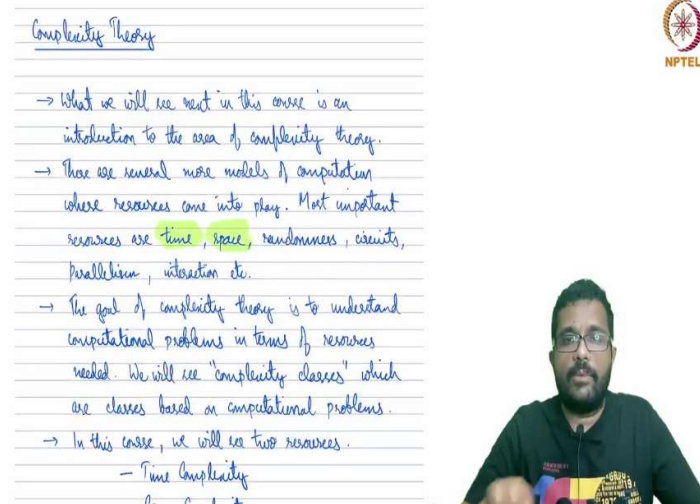 Complexity Theory
NPTEL
→ What we will see next in this course is an
introduction to the area of complexity theory.
→ There are several more models of computation
where resources come into play. Most important
resources are time, space, randomness, circuits,
Parallelism, interaction etc.
→ The goal of complexity theory is to understand
computational problems in terms of resources
needed. We will see "complexity classes" which
are classes based on computational problems.
→ In this course, we will see two resources.
- Time Complexity